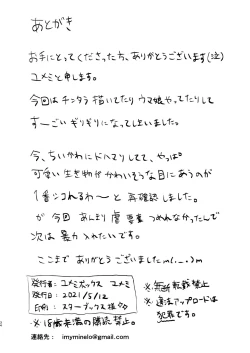 あとがき
お手にとってくださった方、ありがとうございます(泣)
ユメミと申します。
今回はチンタラ描いてたりウマ娘やってたりして
すーごいギリギリになってしまいました。
今、ちいかわにドハマりしてて、やっぱ
可愛い生き物がかわいそうな目にあうのが
1番シコれるわ〜と再確認しました。
が 今回 あんまり虐要素つめれなかったんで
次は暴力入れたいです。
ここまでありがとうございましたm(._.)m
発行者:ユメミボックス ユメミ
発行日:2021/5/12
印刷:スターブックス様
※18歳未満の購読禁止。
※無断転載禁止
※違法アップロードは
犯罪です。
連絡先: imyminelo@gmail.com